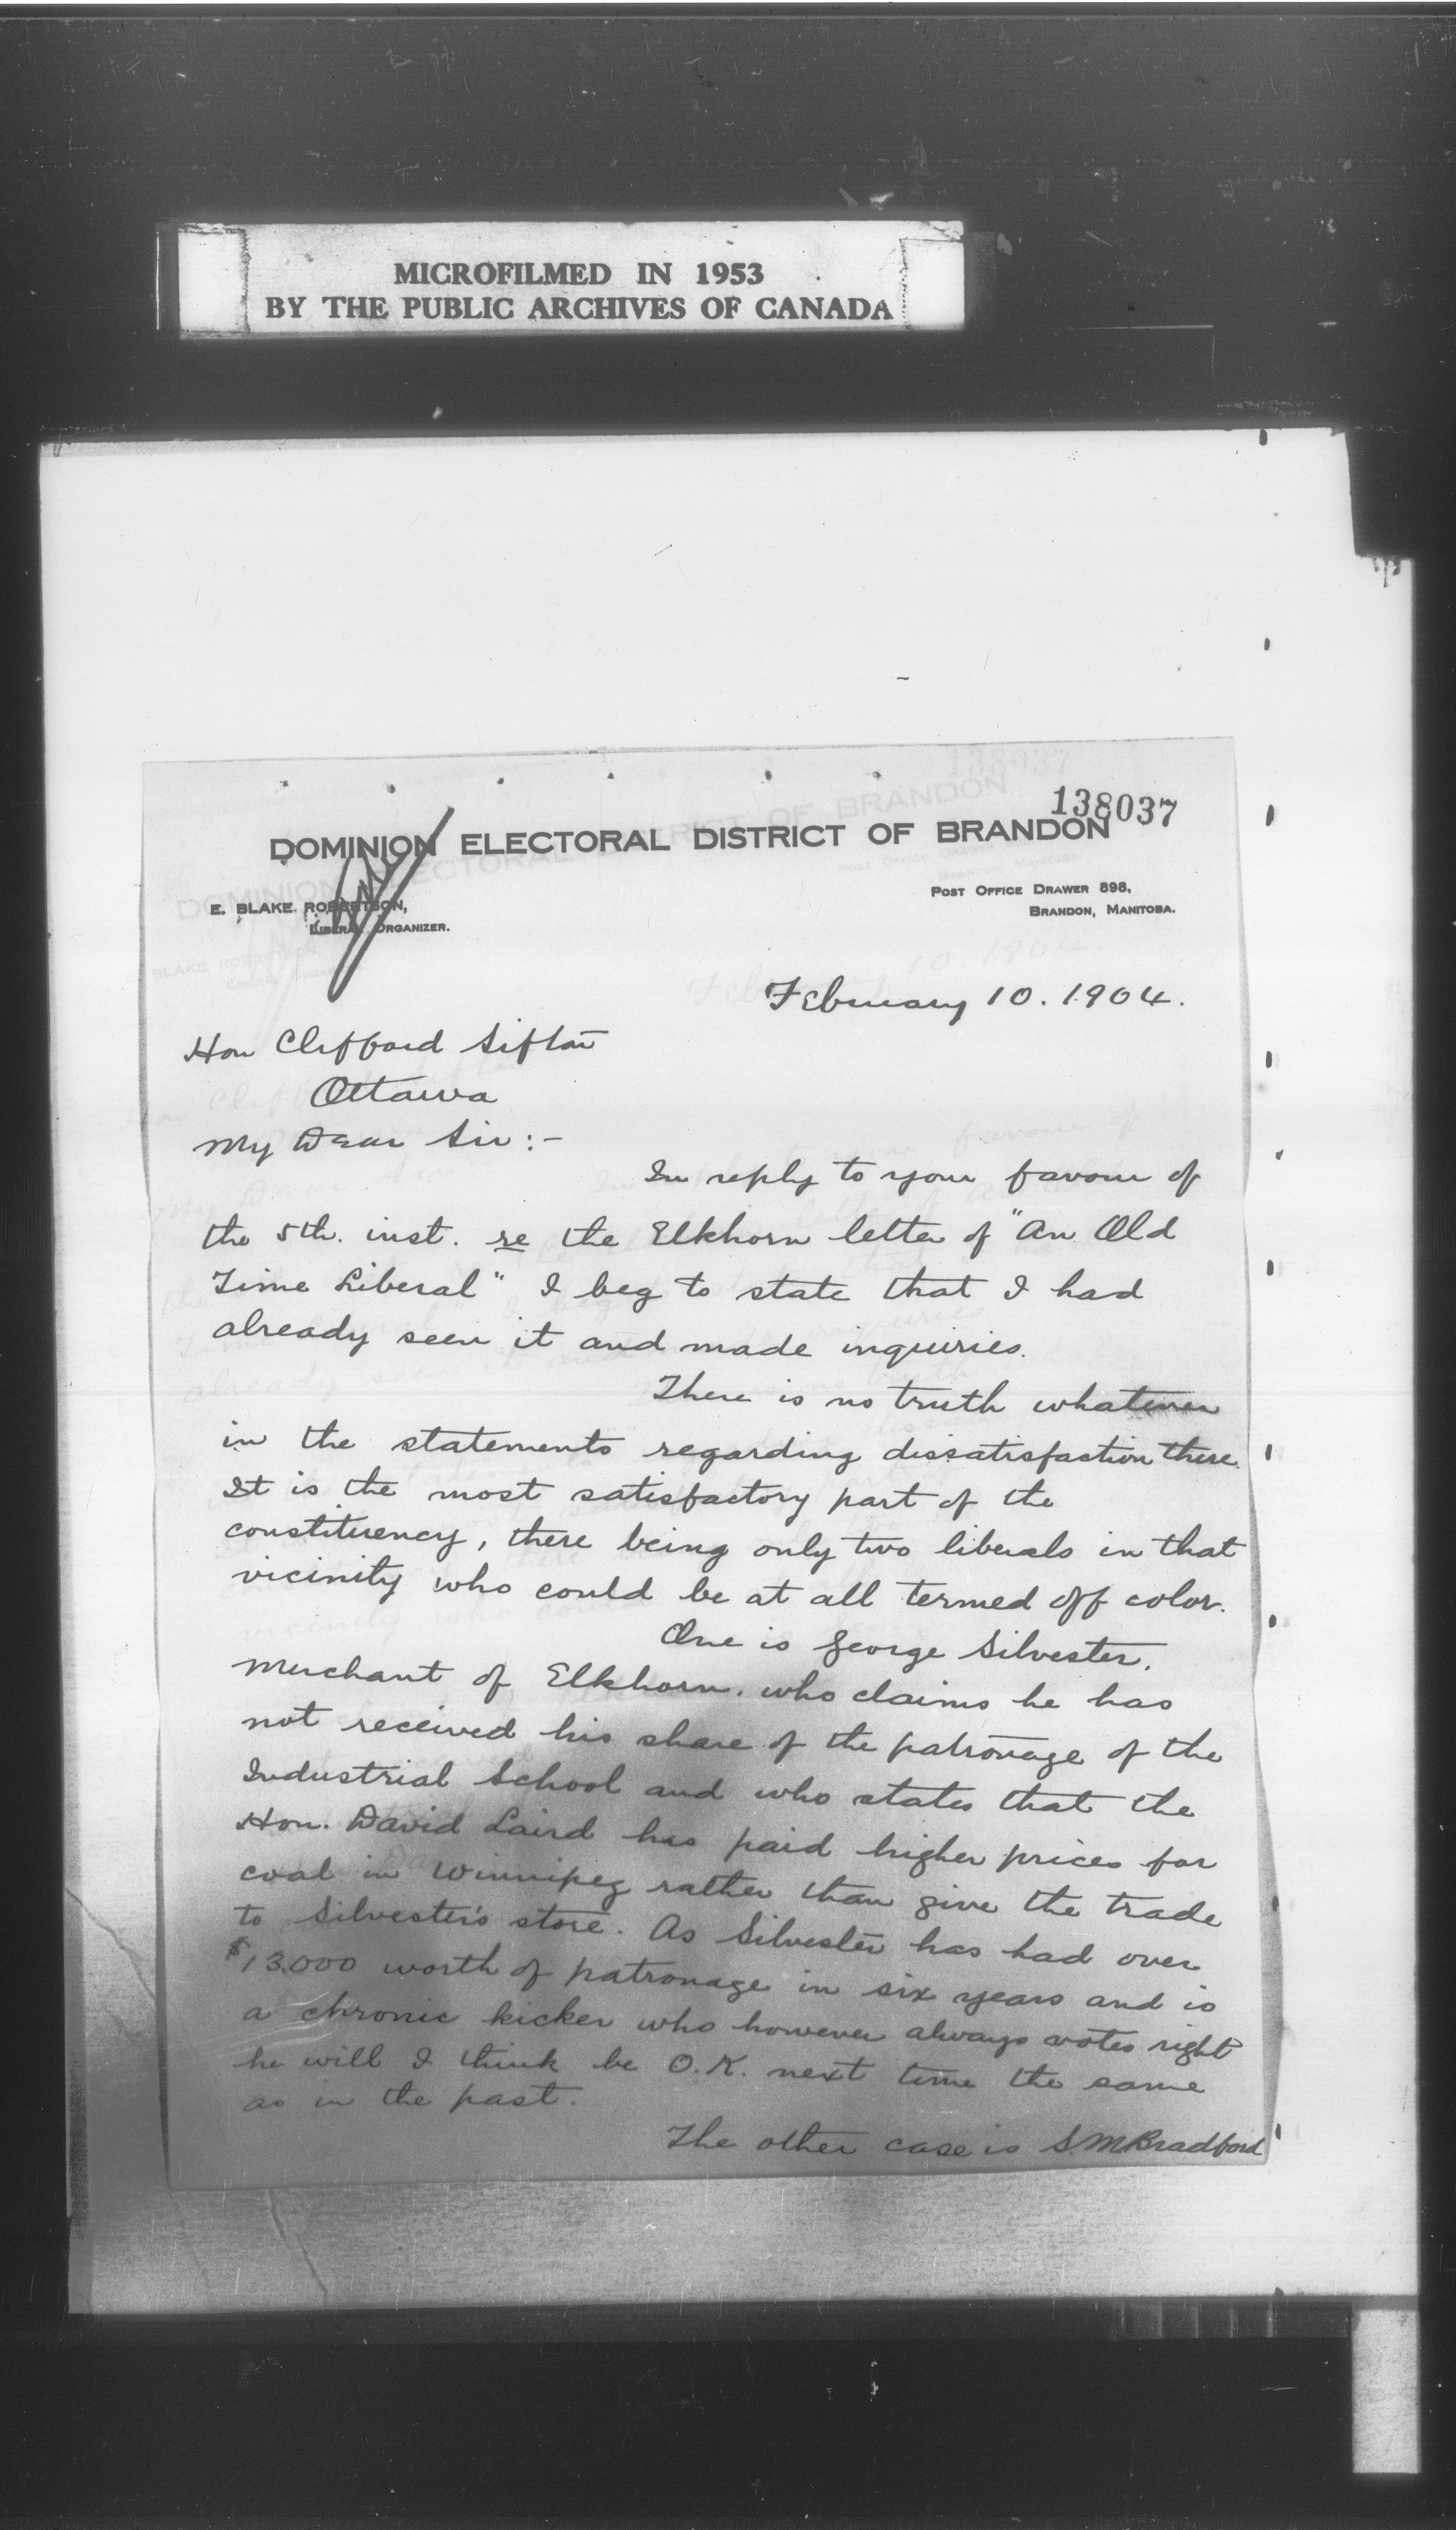 MICROFILMED IN 1953
BY THE PUBLIC ARCHIVES OF CANADA
138037
DOMINION ELECTORAL DISTRICT OF BRANDON
E. BLAKE ROBERTSON,
LIBERAL ORGANIZER.
POST OFFICE DRAWER 898,
BRANDON, MANITOBA.
February 10. 1904.
Hon Clifford Sifton
Ottawa
My Dear Sir:-
In reply to your favour of
the 5th. inst. re the Elkhorn letter of "An Old
Time Liberal" I beg to state that I had
already seen it and made inquiries.
There is no truth whatever
in the statements regarding dissatisfaction there.
It is the most satisfactory part of the
constituency, there being only two liberals in that
vicinity who could be at all termed off color.
One is George Silvester,
Merchant of Elkhorn. who claims he has
not received his share of the patronage of the
Industrial School and who states that the
Hon. David Laird has paid higher prices for
coal in Winnipeg rather than give the trade
to Silvester's store. As Silvester has had over
$13.000 worth of patronage in six years and is
a chronic kicker who however always votes right
he will I think be O.K. next time the same
as in the past.
The other case is S.M Bradford